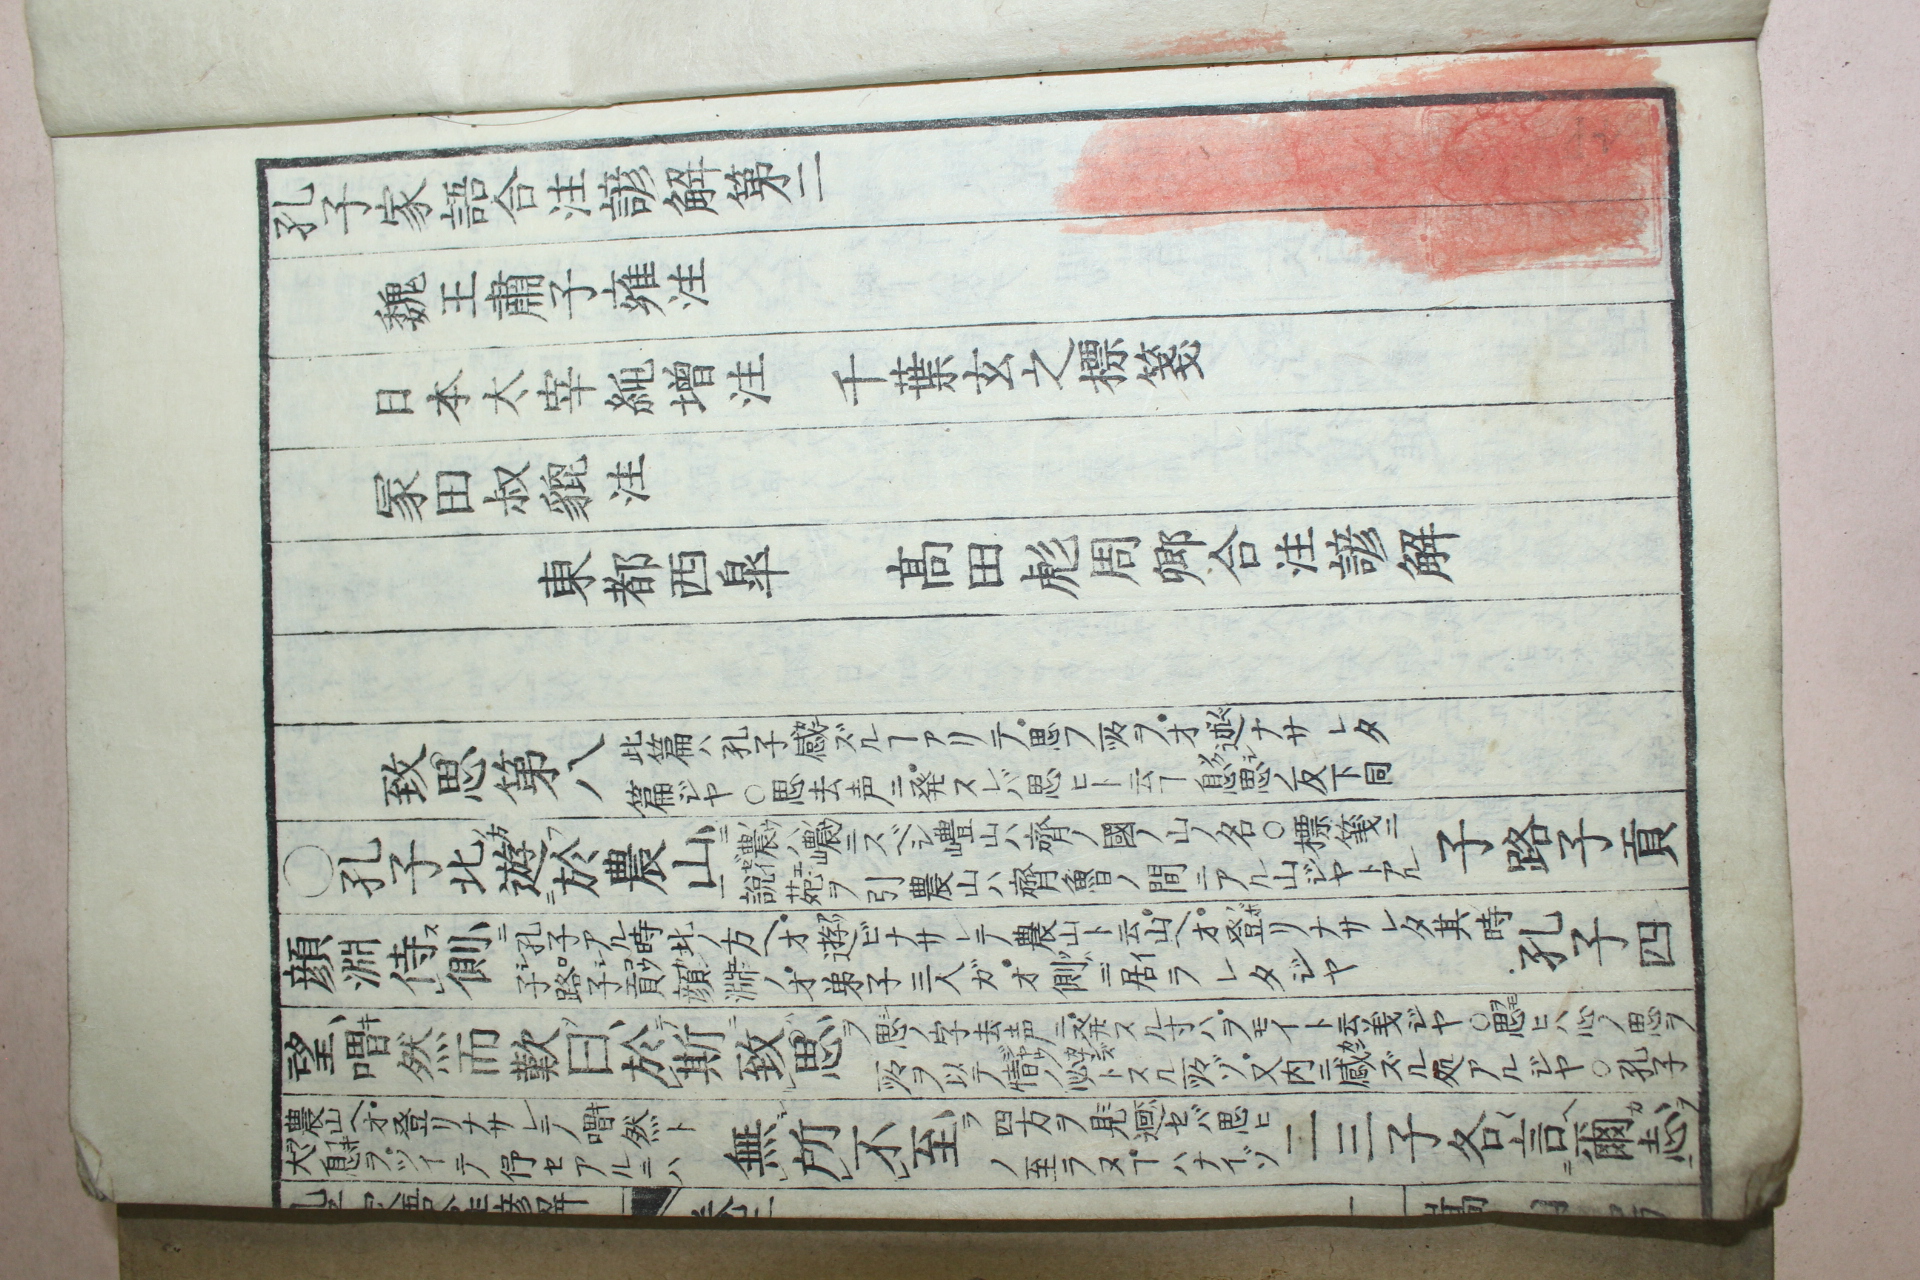 孔子家語合注諺解第二
魏王肅子雍注
日本太宰純增注 千葉玄之標箋
冢田叔貔注
東都西皐 髙田彪周卿合注諺解
致思第八
此篇ハ孔子感ズルヿアリテ思フ所ヲオ述ナサレタ
篇ジヤ○思去声ニ発スレバ思ヒト云ヿ息思ノ反下同
○孔子北遊於農山
農ハ㠢ニスベシ㠢山ハ齊ノ國ノ山ノ名○標箋ニ
説苑ヲ引農山ハ齊魯ノ間ニアル山ジヤトアル
子路子貢
顔淵侍側
孔子アル時北ノ方ヘオ遊ビナサレテ農山ト云山ヘオ登リナサレタ其時
子路子貢顔淵ノオ弟子三人ガオ側ニ居ラレタジヤ
孔子四
望喟然而歎曰於斯致思
思ノ字去声ニ発スル寸ハヲモイト云義ジヤ○思ヒハ心ノ思ヲ
所ヲ以テ情ノ必トスル所ゾ又内ニ感ズル処アルジヤ○孔子
農山ヘオ登リナサレテノ喟然ト
大息ヲツイテ仔セアルニハ
無所不至
四方ヲ見迴セバ思ヒ
ノ至ラヌヿハナイゾ
二三子各言爾志